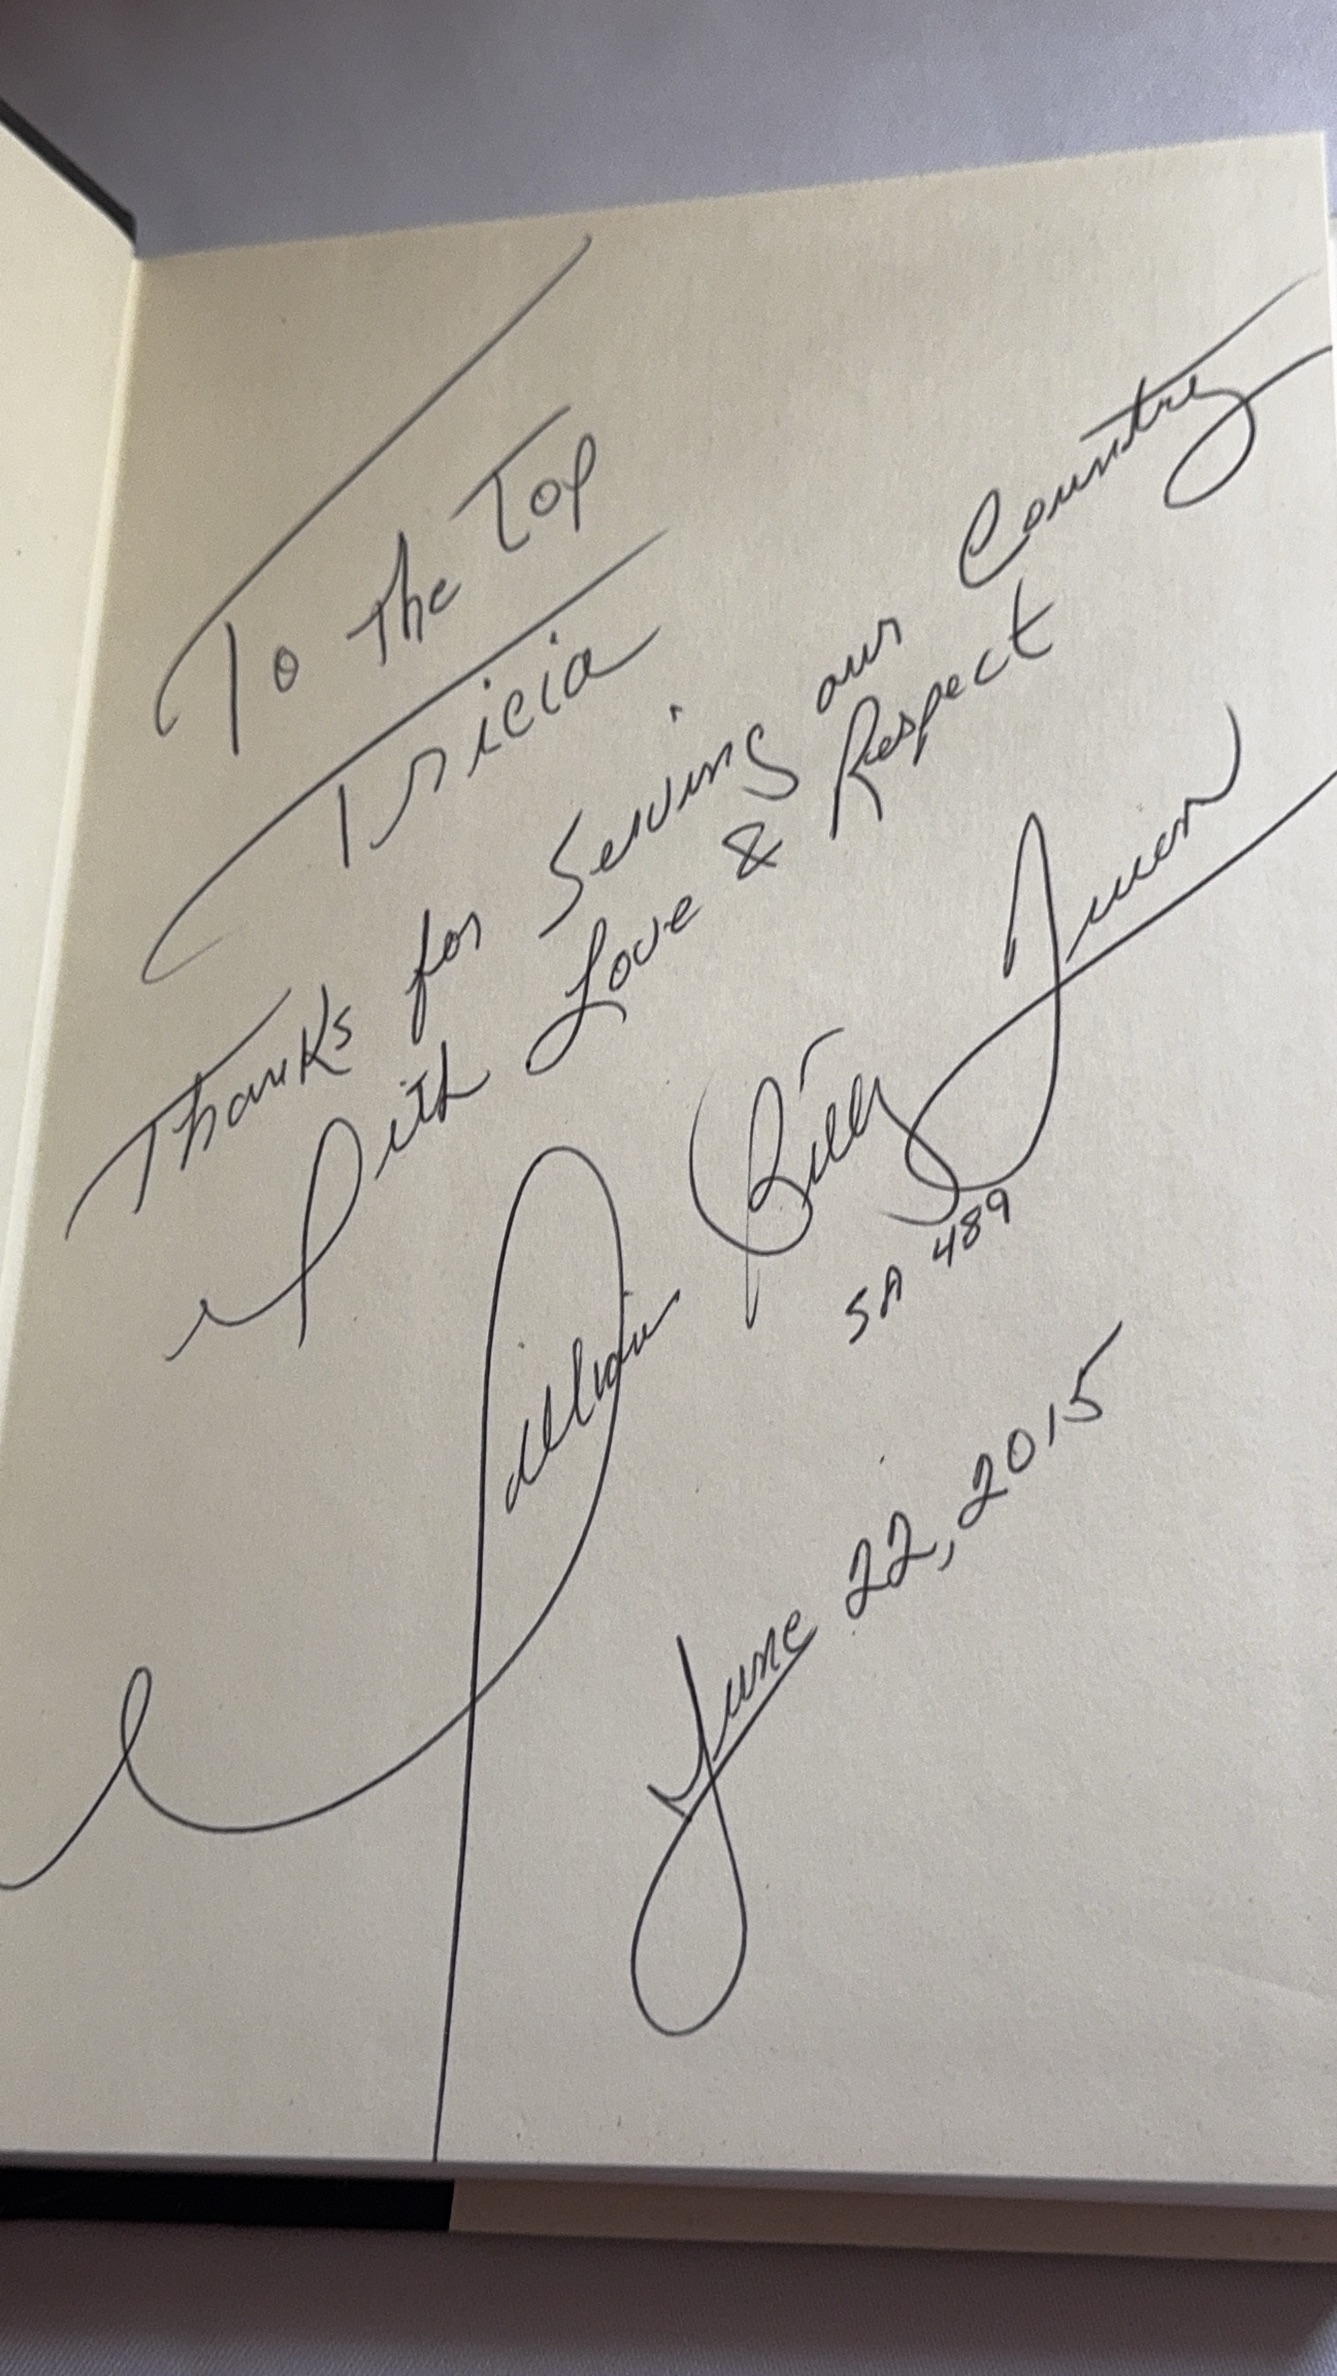 To the Top
Tricia
Thanks for Serving our Country
With Love & Respect
William Billy
SA 489
June 22, 2015